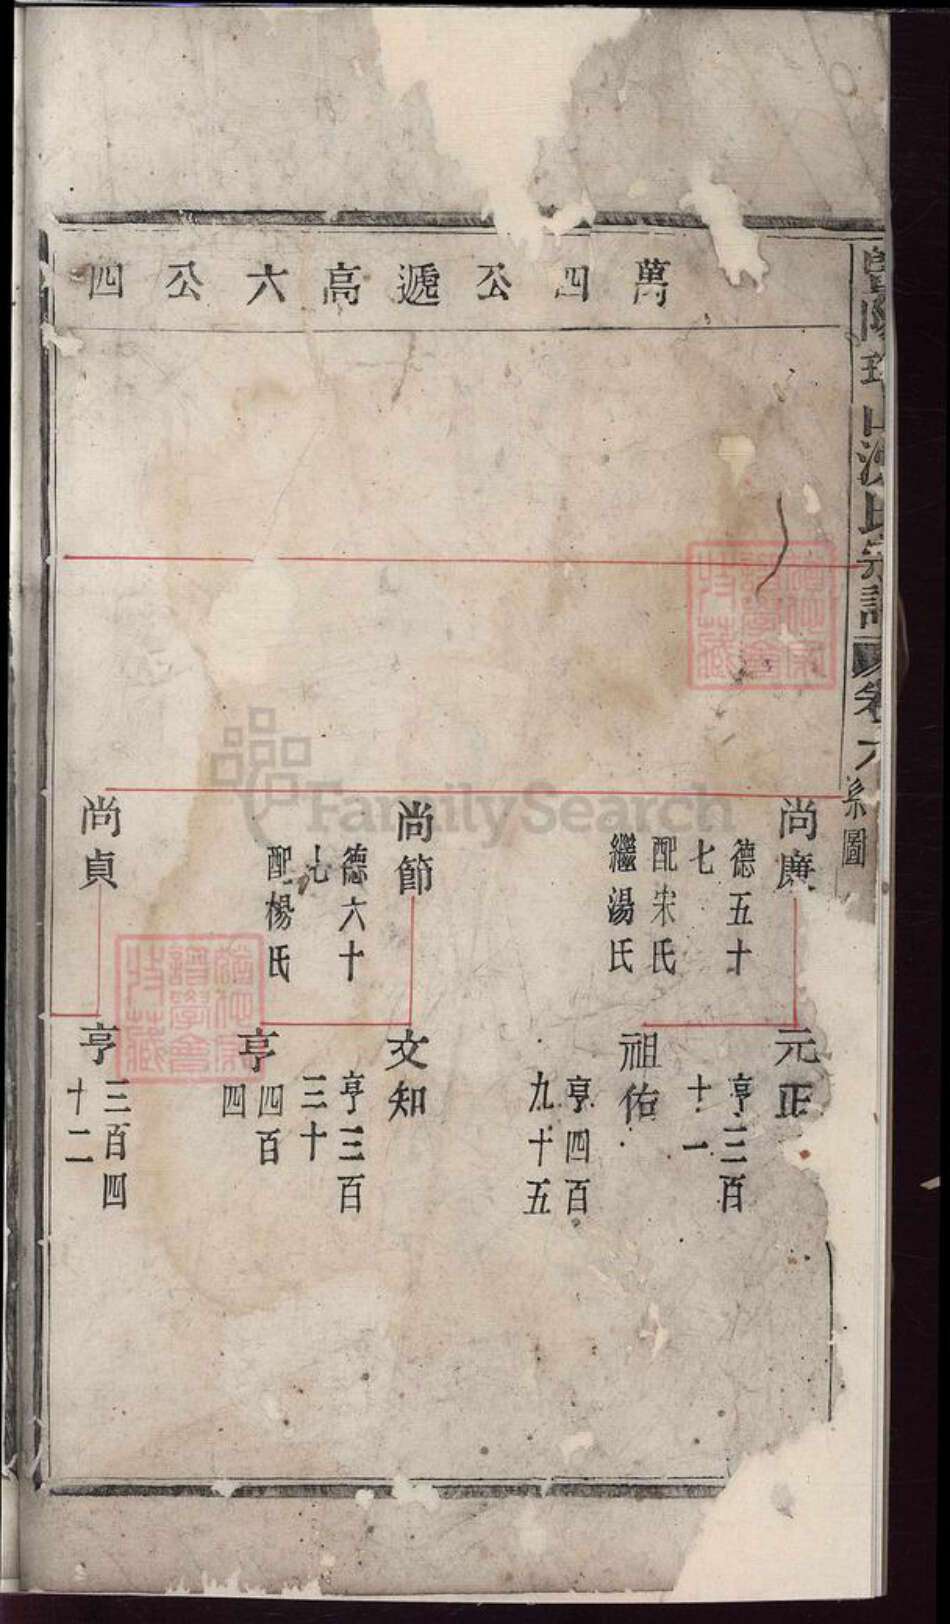 萬四公遞高六公四
尚廉
德五十
七
配宋氏
繼湯氏
元正
亨三百
十一
祖佑
亨四百
九十五
尚節
德六十
七
配楊氏
文知
亨三百
三十
亨
四百
四
尚貞
亨
三百四
十二
氏宗譜
卷六
系圖
FamilySearch